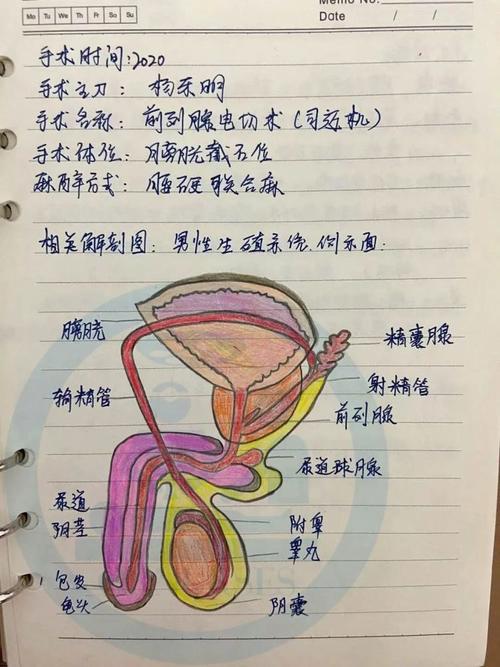 Memo No.
Mo Tu We Th Fr Sa Su
Date / /
手术时间:2020
手术主刀:杨乐明
手术名称:前列腺电切术(司迈机)
手术体位:膀胱截石位
麻醉方式:腰硬联合麻
相关解剖图:男性生殖系统.侧示面:
膀胱
精囊腺
输精管
射精管
前列腺
尿道球腺
尿道
阴茎
附睾
睾丸
包皮
龟头
阴囊